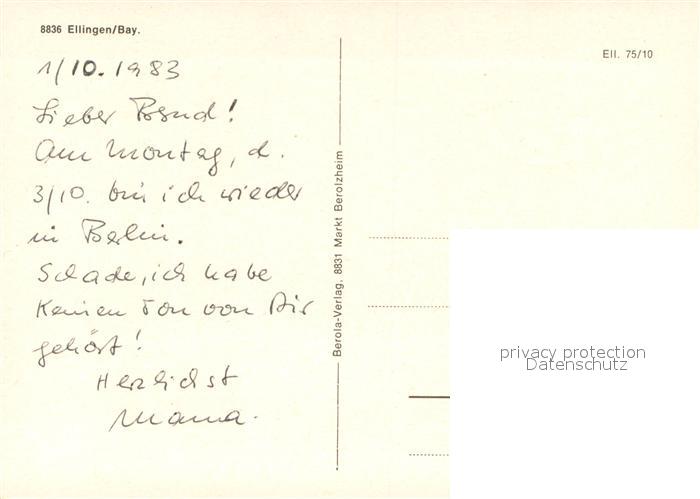 8836 Ellingen/Bay.
Ell. 75/10
1/10.1983
Lieber Bernd!
Am Montag, d.
3/10. bin ich wieder
in Berlin.
Schade, ich habe
keinen Ton von Dir
gehört!
Herzlichst
Mama.
Berola-Verlag, 8831 Markt Berolzheim
privacy protection
Datenschutz